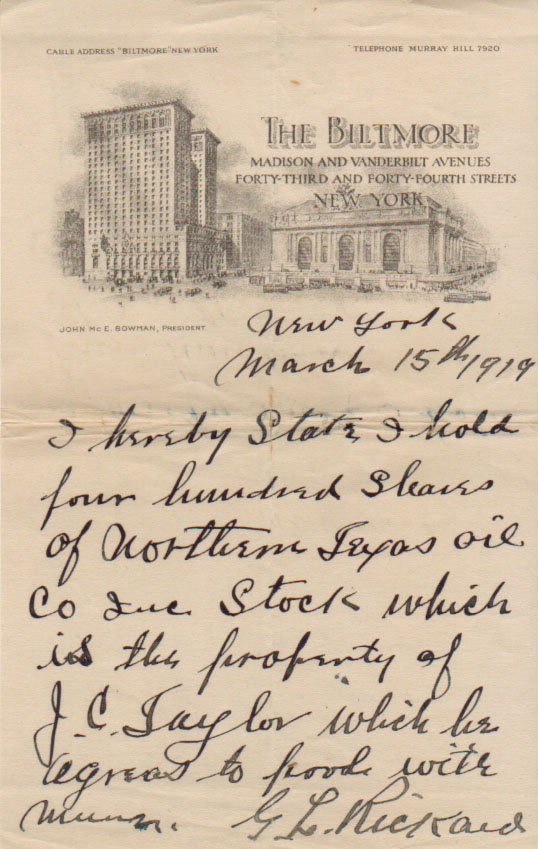 CABLE ADDRESS "BILTMORE" NEW YORK
TELEPHONE MURRAY HILL 7920
THE BILTMORE
MADISON AND VANDERBILT AVENUES
FORTY-THIRD AND FORTY-FOURTH STREETS
NEW YORK
JOHN MC E. BOWMAN, PRESIDENT
New York
March 15th, 1919
I hereby State I hold
four hundred Shares
of Northern Texas oil
Co Inc. Stock which
is the property of
J. C. Taylor which he
agreas to pool with
G L. Rickard